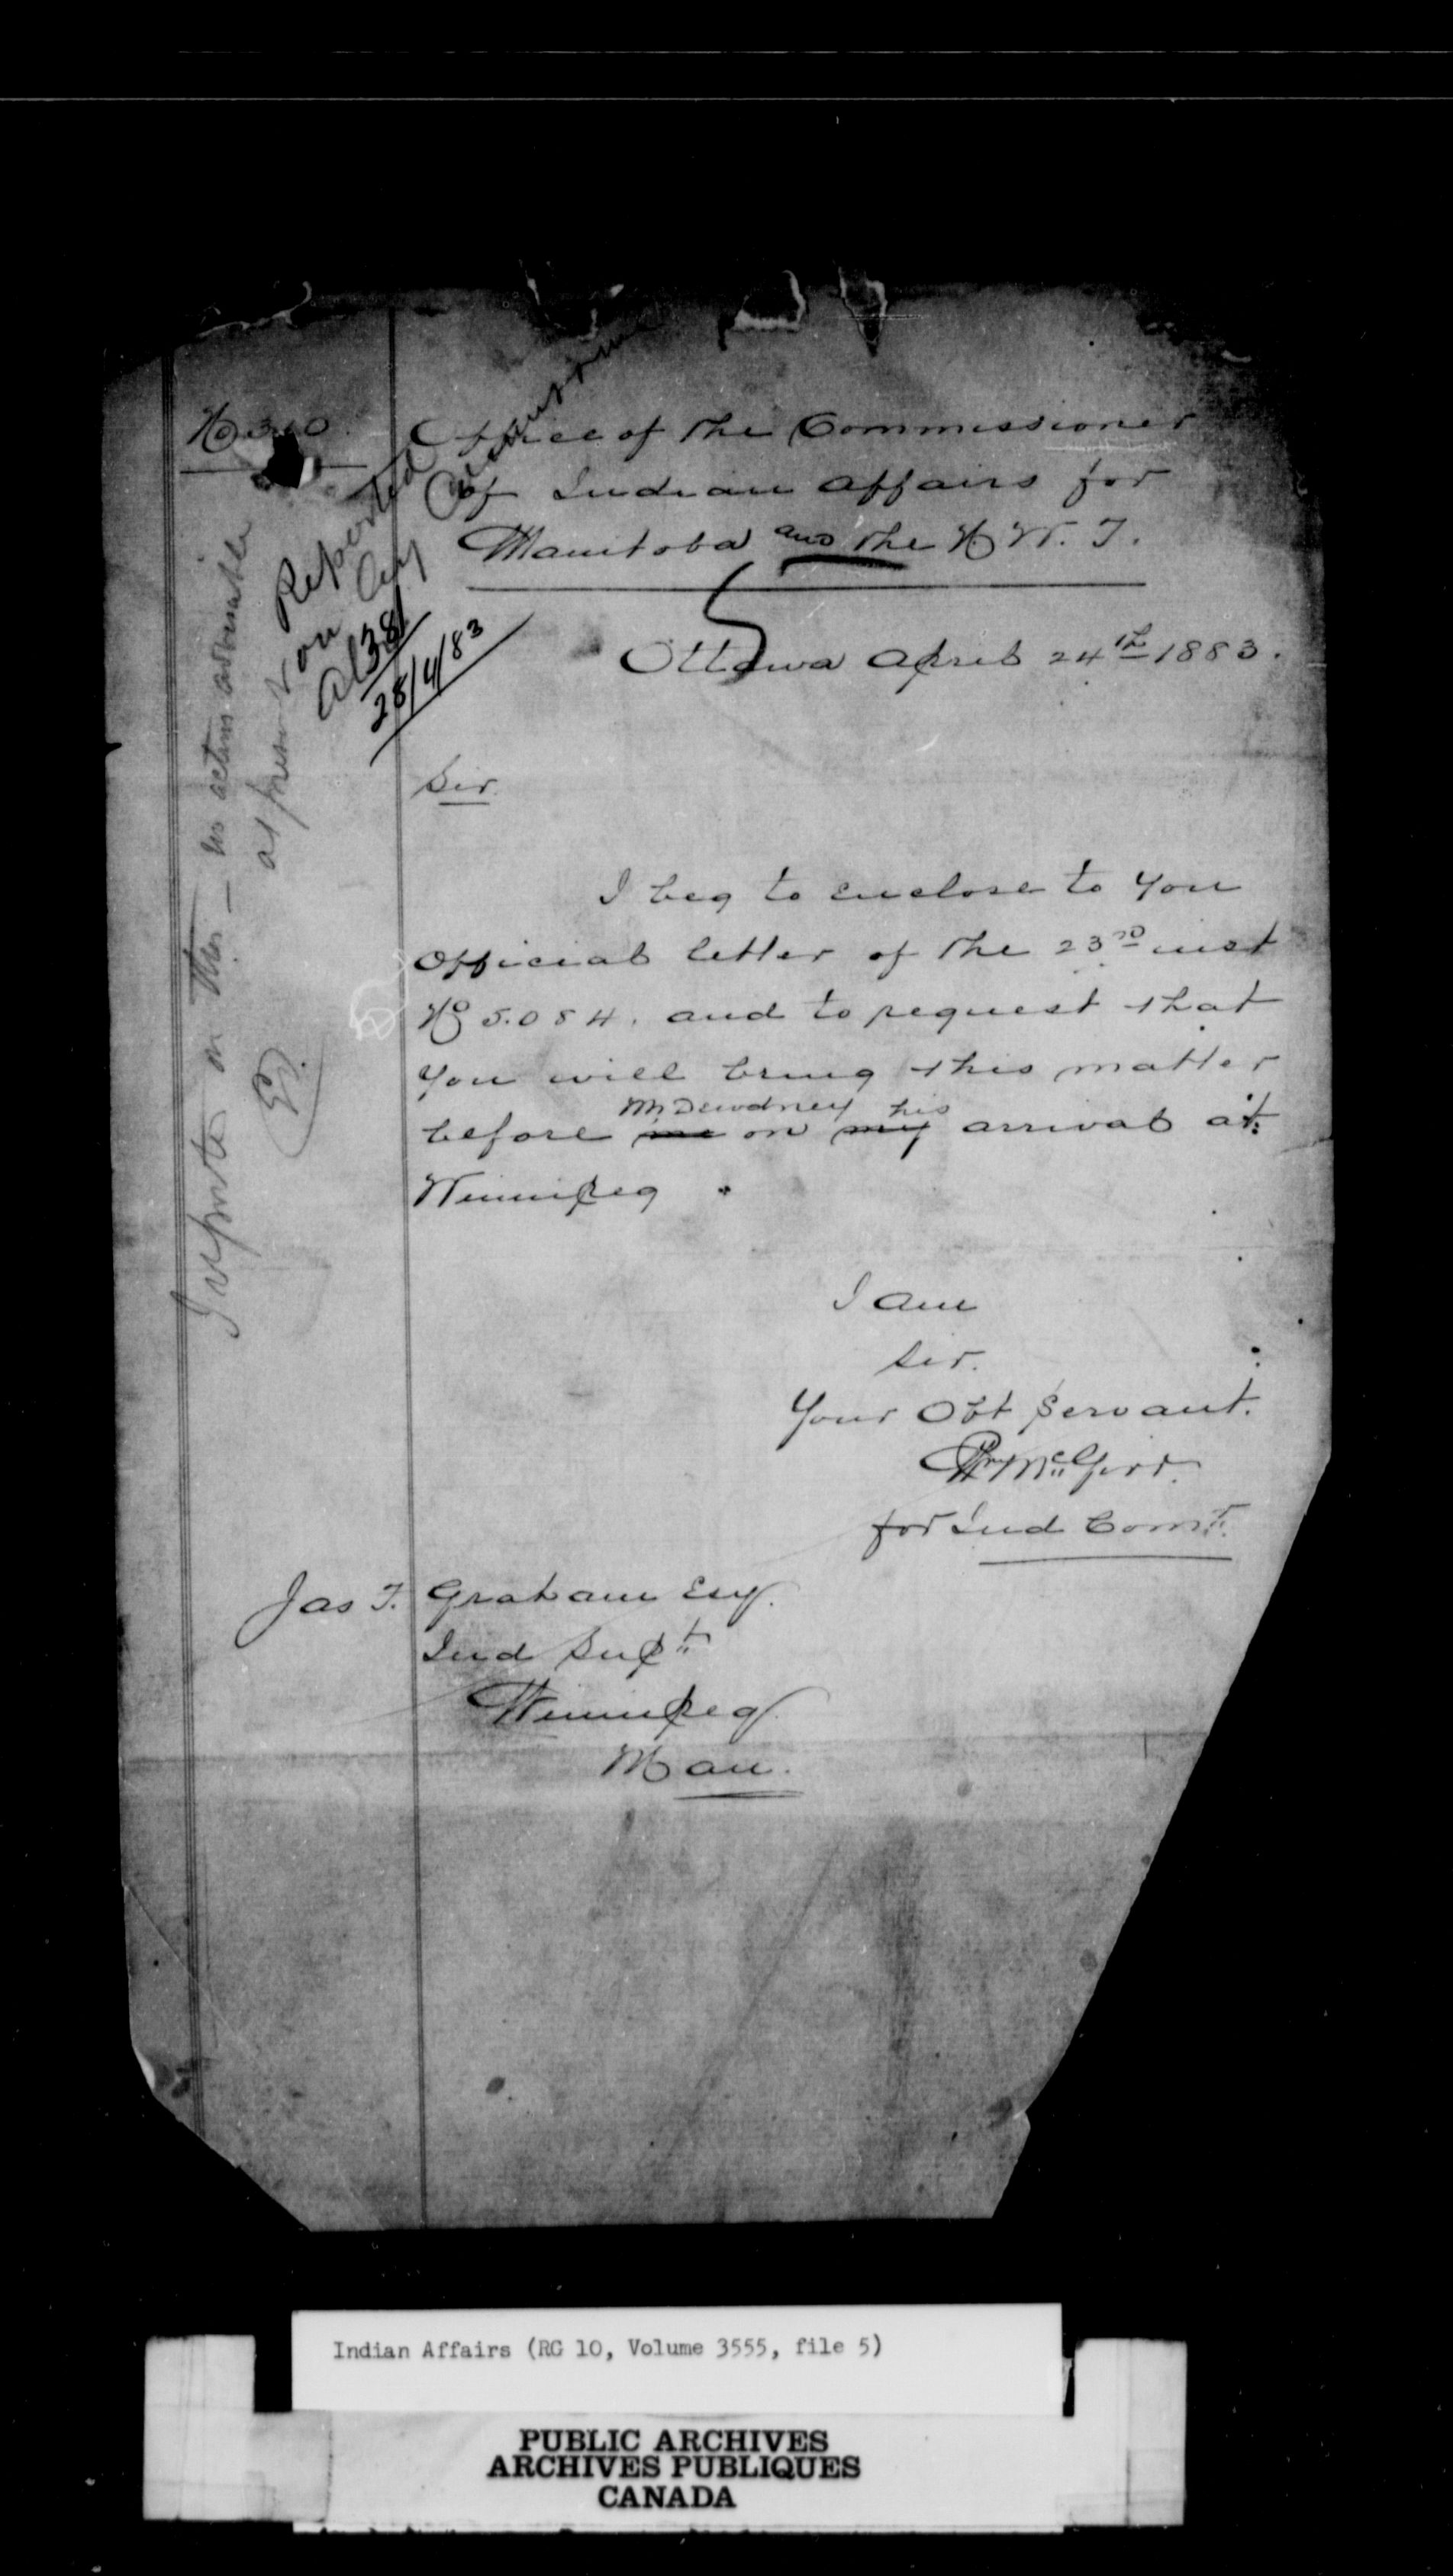 No 310
Office of the Commissioner
of Indian Affairs for
Manitoba and the N W. T.
5
Ottawa April 24th 1883.
Reported
on by
28/4/83
Sir.
I beg to enclose to you
Official letter of the 23rd inst
No 5.084. and to request that
you will bring this matter
Mr Dewdney his
before me on my arrival at
Winnipeg.
I am
Sir.
Your Obt Servant.
McGirr.
for Ind Comr.
Jas F. Graham Esq.
Ind Supt
Winnipeg
Man.
on this — no action advisable
at present
ED.
Indian Affairs (RG 10, Volume 3555, file 5)
PUBLIC ARCHIVES
ARCHIVES PUBLIQUES
CANADA